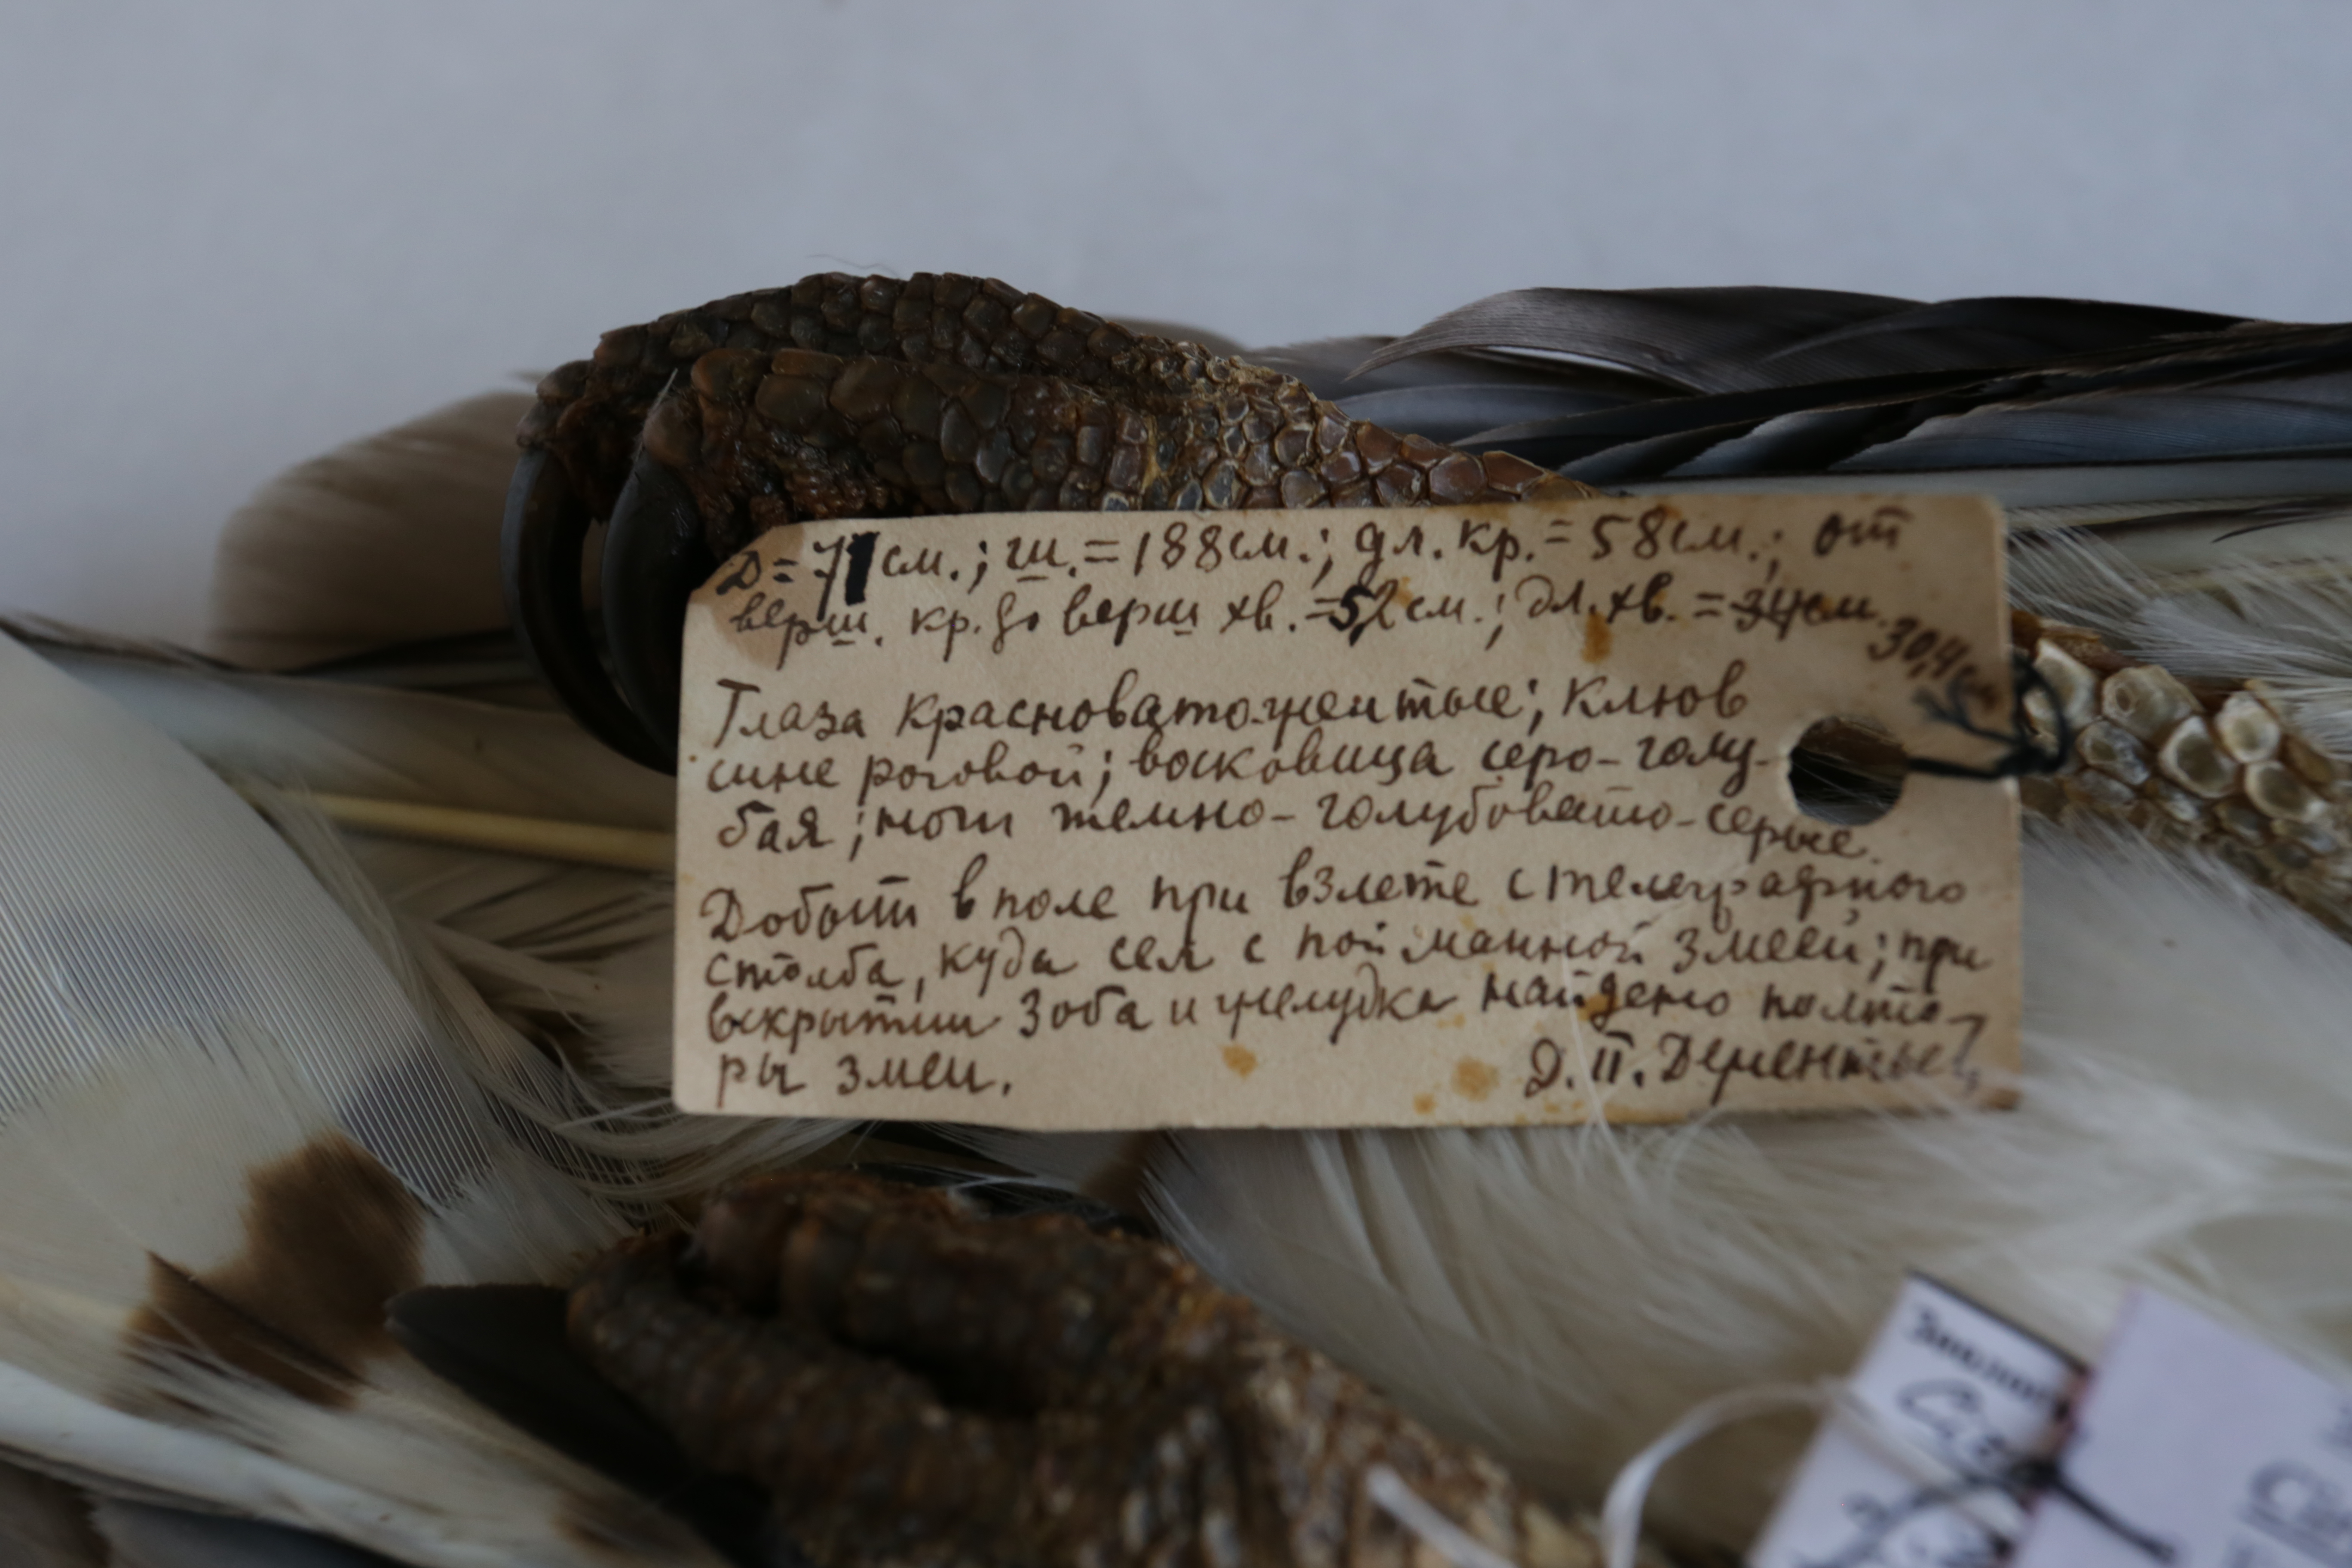 Д = 71 см.; ш. = 188 см.; дл. кр. = 58 см.; от
верш. кр. до верш хв. = 52 см.; дл. хв. = 34 см. 30,4 см
Глаза красновато-желтые; клюв
сине роговой; восковица серо-голу-
бая; ноги темно-голубовато-серые.
Добыт в поле при взлете с телеграфного
столба, куда сел с пойманной змеей; при
вскрытии зоба и желудка найдено полто-
ры змеи. Д. П. Дементьев